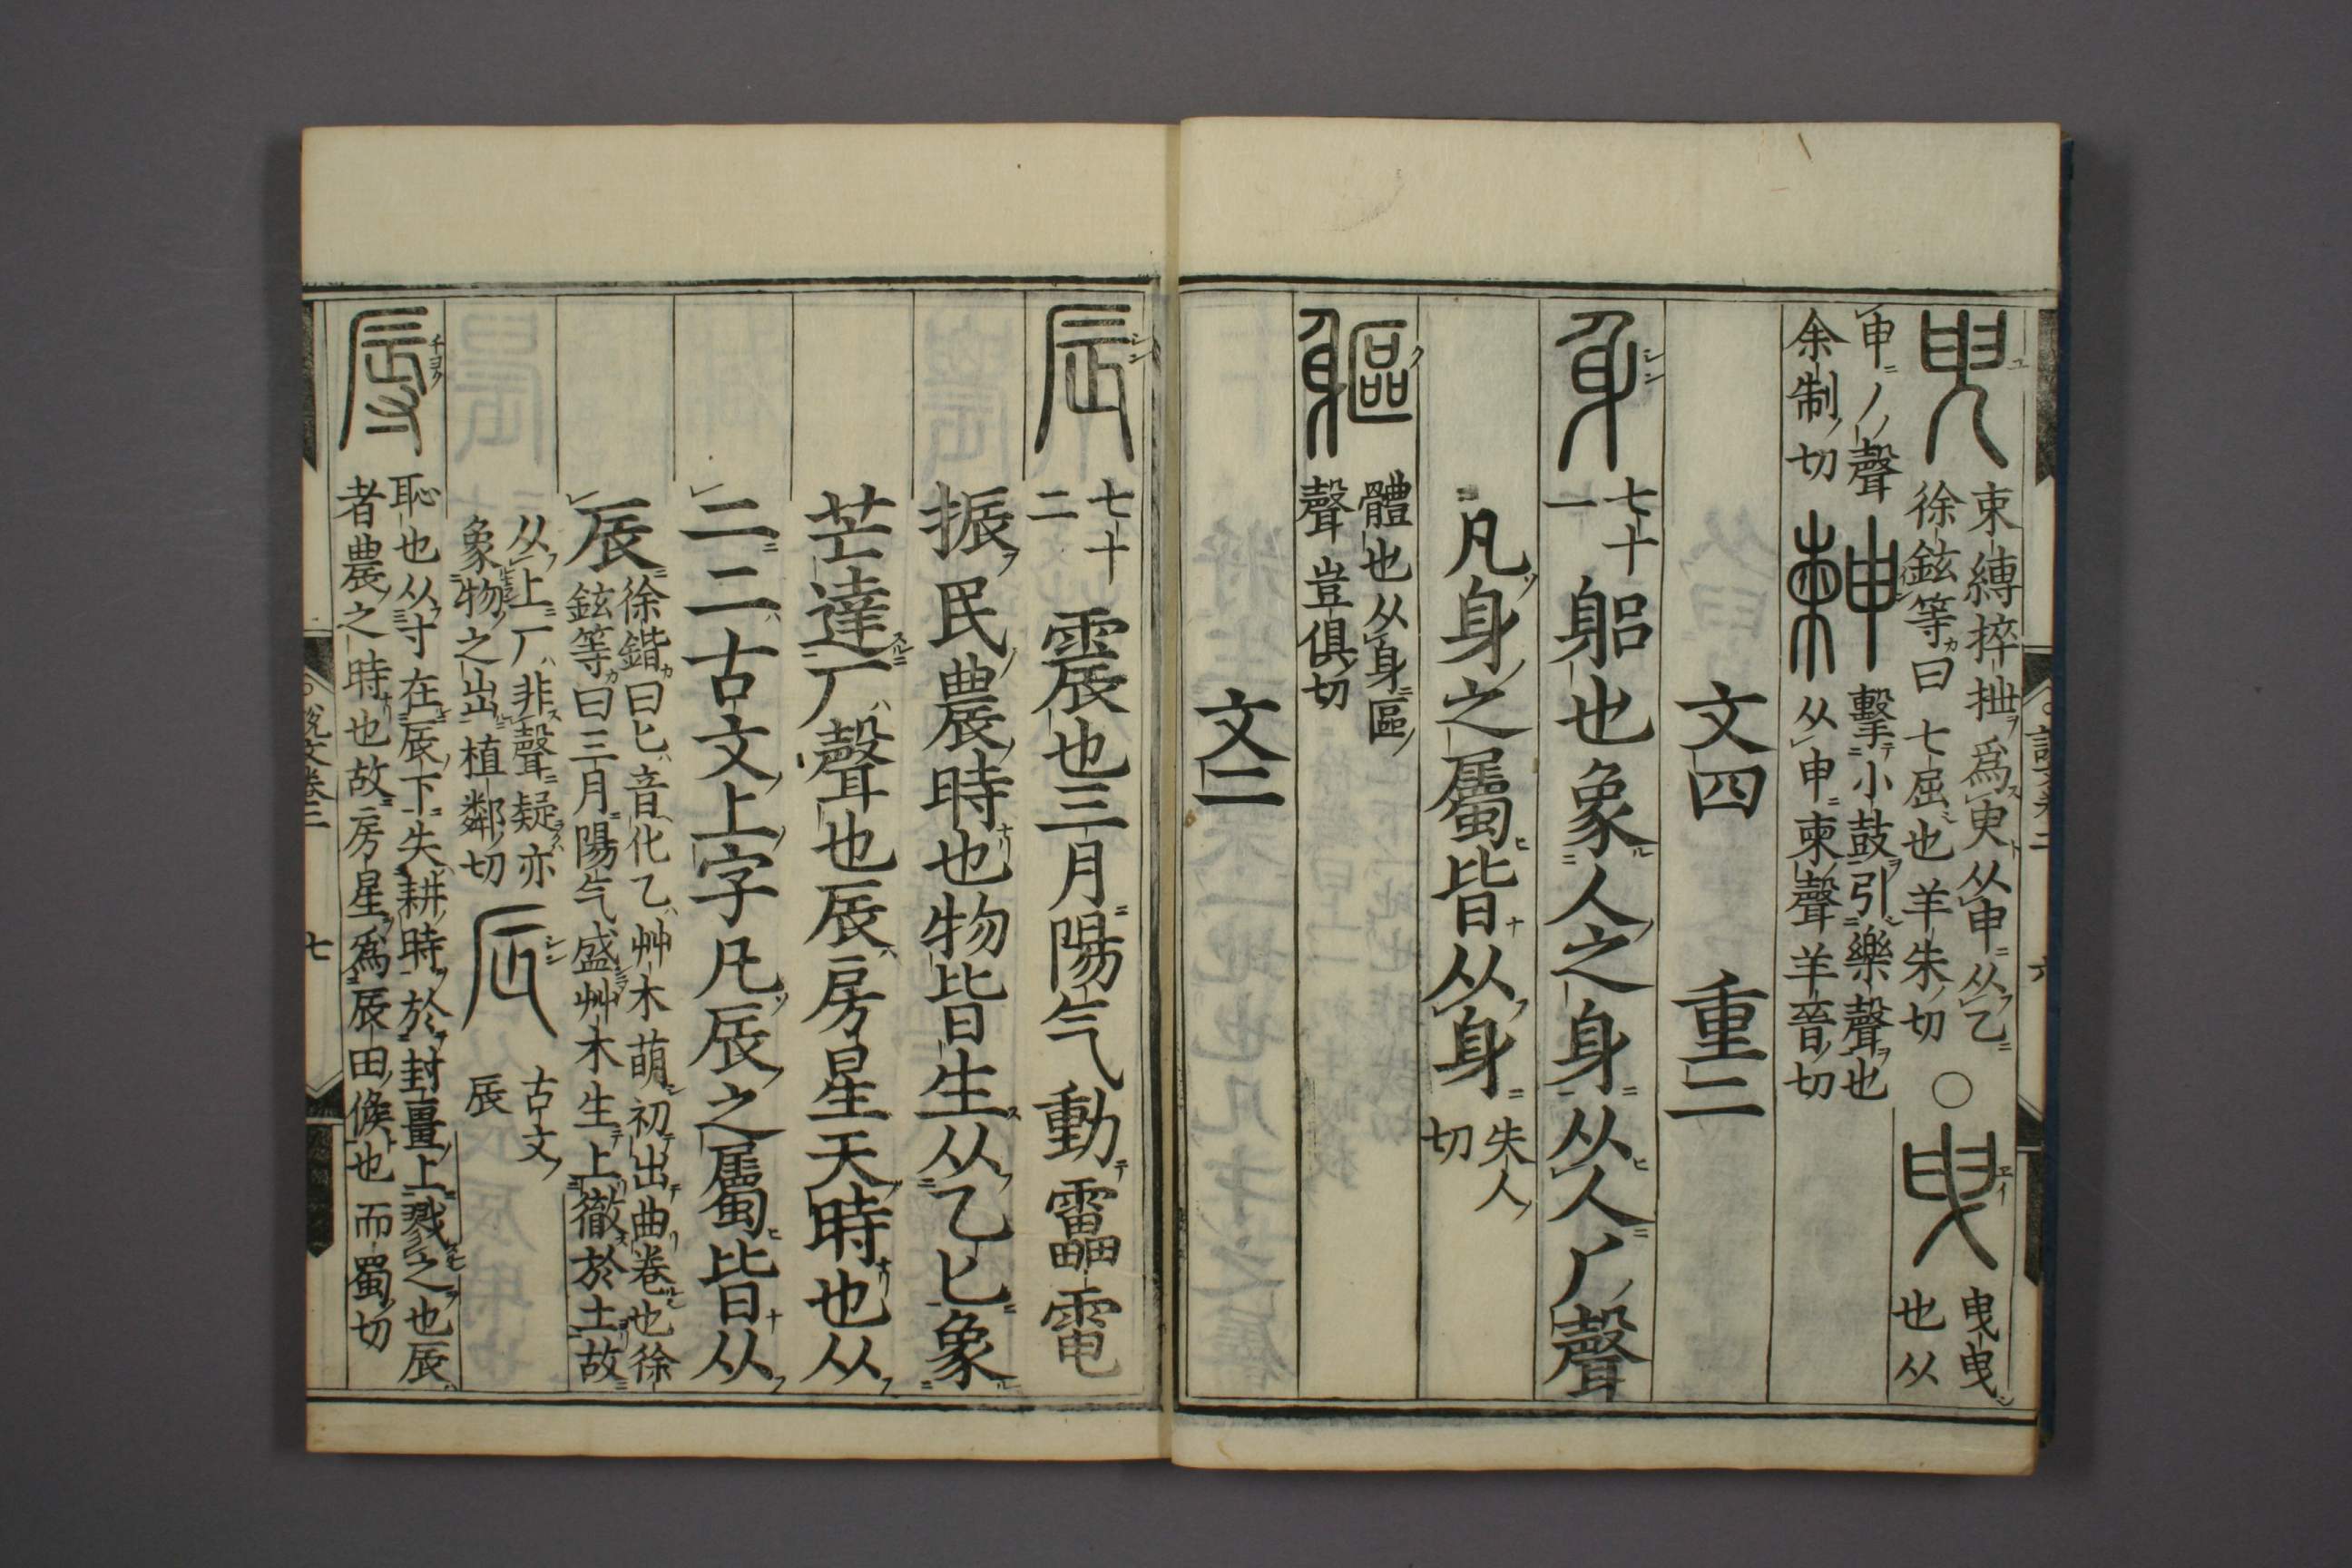 臾
束縛捽抴爲臾从申从乙
徐鉉等曰七屈也羊朱切
○
曳
曳曳
也从
申丿聲
余制切
𣌾
擊小鼓引樂聲也
从申柬聲羊晉切
文四 重二
身
七十
一
躳也象人之身从人厂聲
凡身之屬皆从身
失人
切
軀
體也从身區
聲豈俱切
文二
辰
七十
二
震也三月陽气動靁電
振民農時也物皆生从乙匕象
芒達厂聲也辰房星天時也从
二二古文上字凡辰之屬皆从
辰
徐鍇曰匕音化乙艸木萌初出曲卷也徐
鉉等曰三月陽气盛艸木生上徹於土故
从上厂非聲疑亦
象物之出植鄰切
辰
古文
辰
辱
恥也从寸在辰下失耕時於封畺上戮之也辰
者農之時也故房星爲辰田候也而蜀切
說文卷二
七